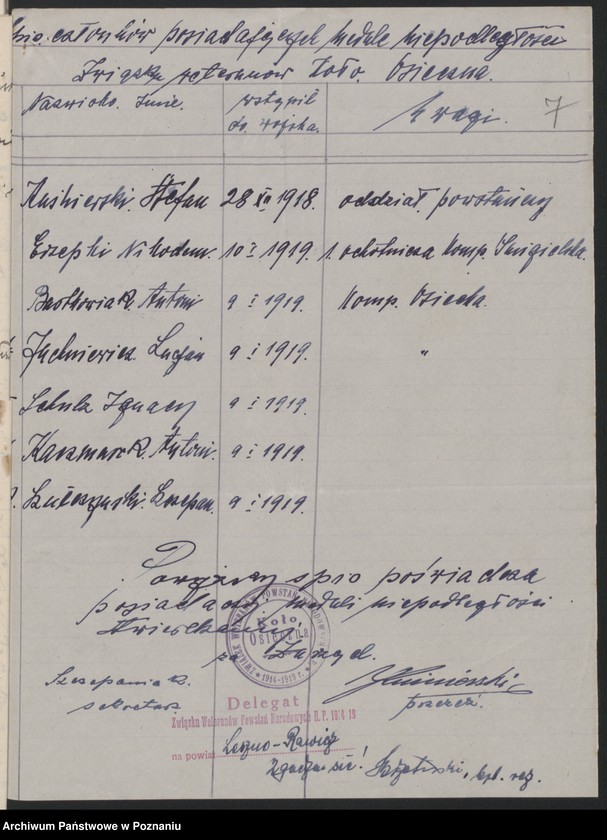 spis. członków posiadających medale niepodległości
Związku weteranów Koło. Osieczna.
Nazwisko. Imie. wstąpił do. wojska. Uwagi. 7
Stefan 28 XII 1918. oddział. powstańczy
Nikodem. 10 I 1919. 1. ochotnicza komp. Śmigielska.
Bartkowiak. Antoni 9 I 1919. Komp. Osiecka.
Juchniewicz. Lucjan 9 I 1919. "
Schulz Ignacy 9 I 1919.
Kaczmarek. Antoni. 9 I 1919.
Szczepan. 9 I 1919.
Powyższy spis poświadcza
posiadaczy, medali niepodległości
za Zarząd.
Koło
Osieczna
1914-1919 r.
Szczepaniak.
sekretarz.
prezes.
Delegat
Związku Weteranów Powstań Narodowych R. P. 1914-19
na powiat Leszno-Rawicz
Zgadza się! kpt. rez.
Archiwum Państwowe w Poznaniu